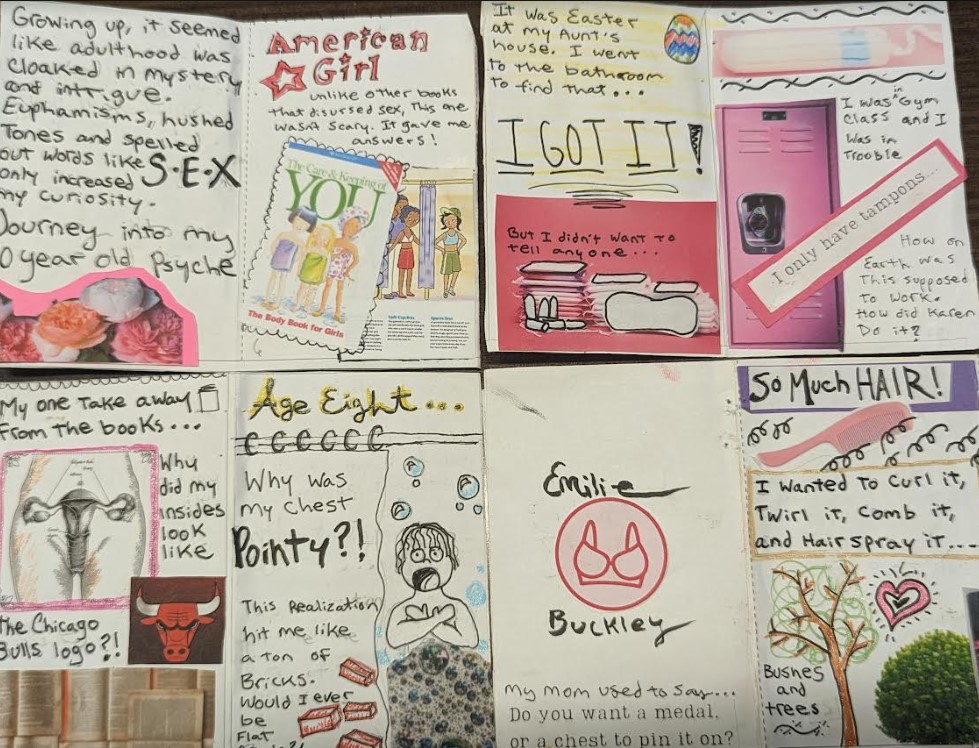 Growing up, it seemed
like adulthood was
cloaked in mystery
and intrigue.
Euphamisms, hushed
Tones and spelled
out words like S.E.X
only increased
my curiosity.
Journey into my
0 year old Psyche
American
Girl
unlike other books
that disursed sex, This one
wasn't scary. It gave me
answers!
The Care & Keeping of
YOU
The Body Book for Girls
It was Easter
at my Aunt's
house. I went
to the bathroom
to find that...
I GOT IT!
But I didn't want to
tell anyone...
I was in Gym
class and I
was in
Trouble
I only have tampons...
How on
Earth was
This supposed
to work.
How did Karen
Do it?
My one Take away
From the books...
Why
did my
insides
look
like
the Chicago
Bulls logo?!
Age Eight...
Why was
my chest
Pointy?!
This Realization
hit me like
a ton of
Bricks.
Would I ever
be
Flat
Emilie
Buckley
My Mom used to say...
Do you want a medal,
or a chest to pin it on?
So Much HAIR!
I wanted To Curl it,
Twirl it, Comb it,
and Hairspray it...
Bushes
and
trees